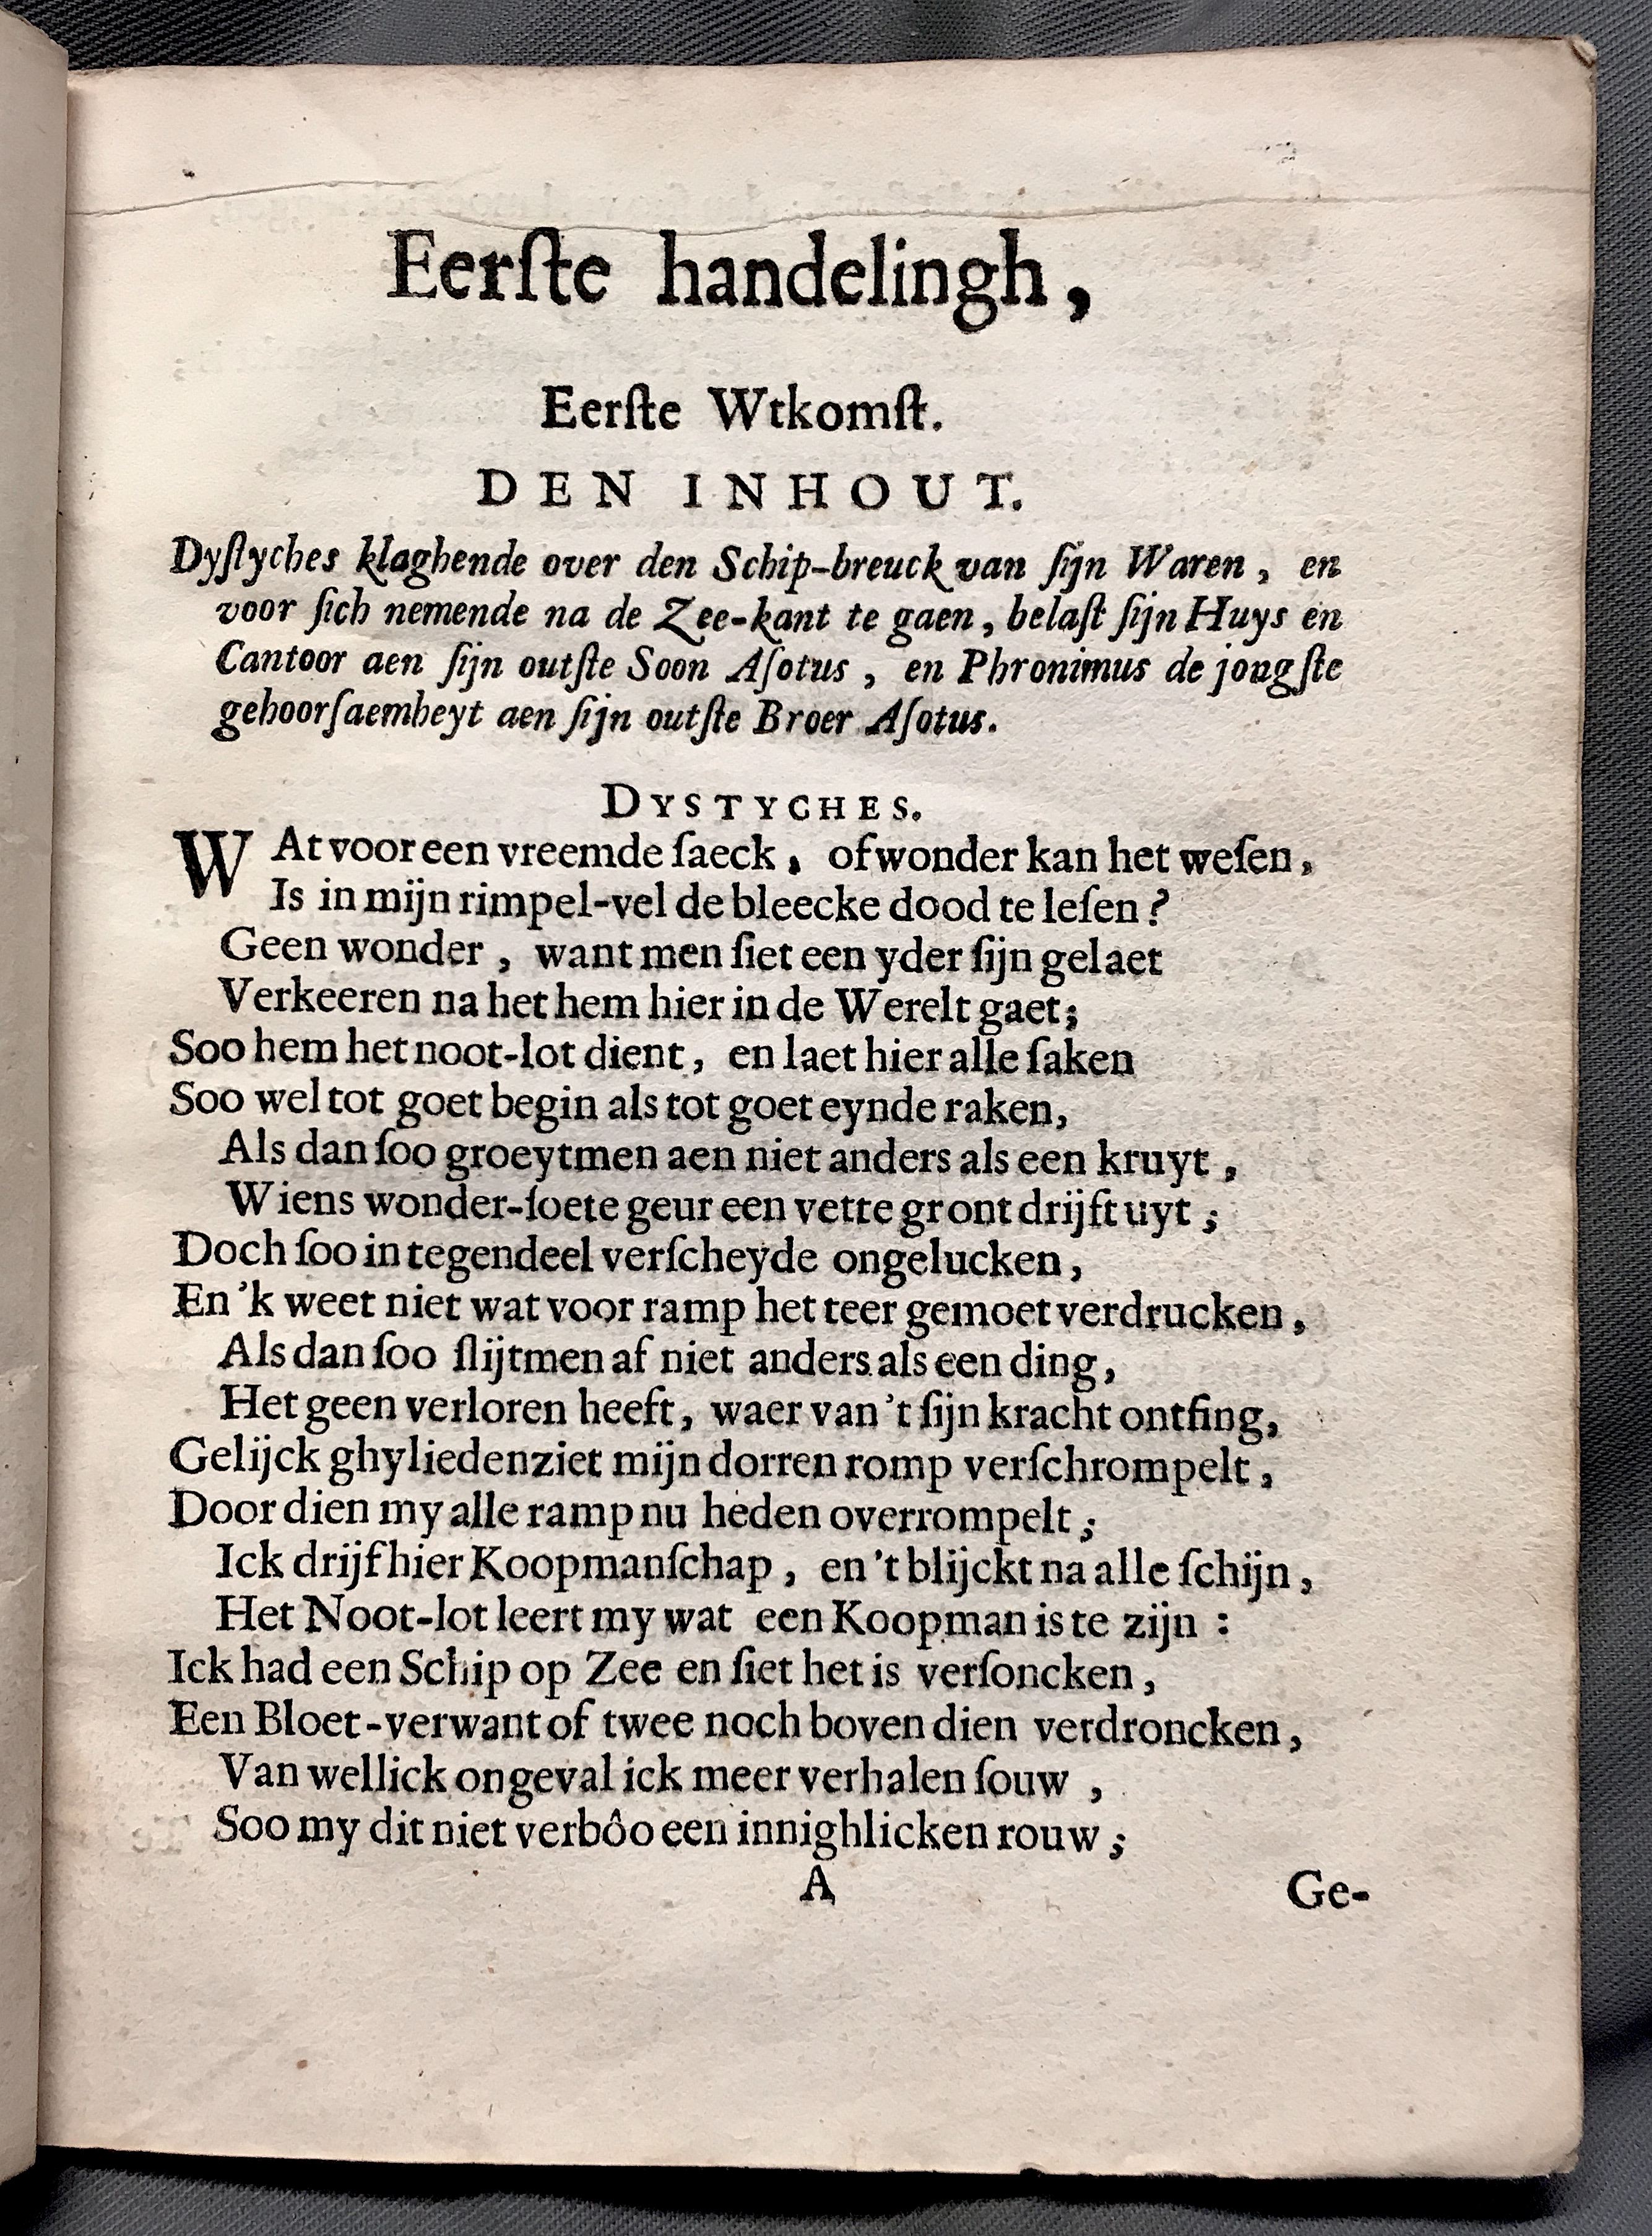 Eerſte handelingh,
Eerſte Wtkomſt.
DEN INHOUT.
Dyſtyches klaghende over den Schip-breuck van ſijn Waren, en
voor ſich nemende na de Zee-kant te gaen, belaſt ſijn Huys en
Cantoor aen ſijn outſte Soon Aſotus, en Phronimus de jongſte
gehoorſaemheyt aen ſijn outſte Broer Aſotus.
DYSTYCHES.
WAt voor een vreemde ſaeck, of wonder kan het weſen,
Is in mijn rimpel-vel de bleecke dood te leſen?
Geen wonder, want men ſiet een yder ſijn gelaet
Verkeeren na het hem hier in de Werelt gaet;
Soo hem het noot-lot dient, en laet hier alle ſaken
Soo wel tot goet begin als tot goet eynde raken,
Als dan ſoo groeytmen aen niet anders als een kruyt,
Wiens wonder-ſoete geur een vette gront drijft uyt;
Doch ſoo in tegendeel verſcheyde ongelucken,
En 'k weet niet wat voor ramp het teer gemoet verdrucken,
Als dan ſoo ſlijtmen af niet anders als een ding,
Het geen verloren heeft, waer van 't ſijn kracht ontfing,
Gelijck ghylieden ziet mijn dorren romp verſchrompelt,
Door dien my alle ramp nu heden overrompelt;
Ick drijf hier Koopmanſchap, en 't blijckt na alle ſchijn,
Het Noot-lot leert my wat een Koopman is te zijn:
Ick had een Schip op Zee en ſiet het is verſoncken,
Een Bloet-verwant of twee noch boven dien verdroncken,
Van wellick ongeval ick meer verhalen ſouw,
Soo my dit niet verbôo een innighlicken rouw;
A
Ge-